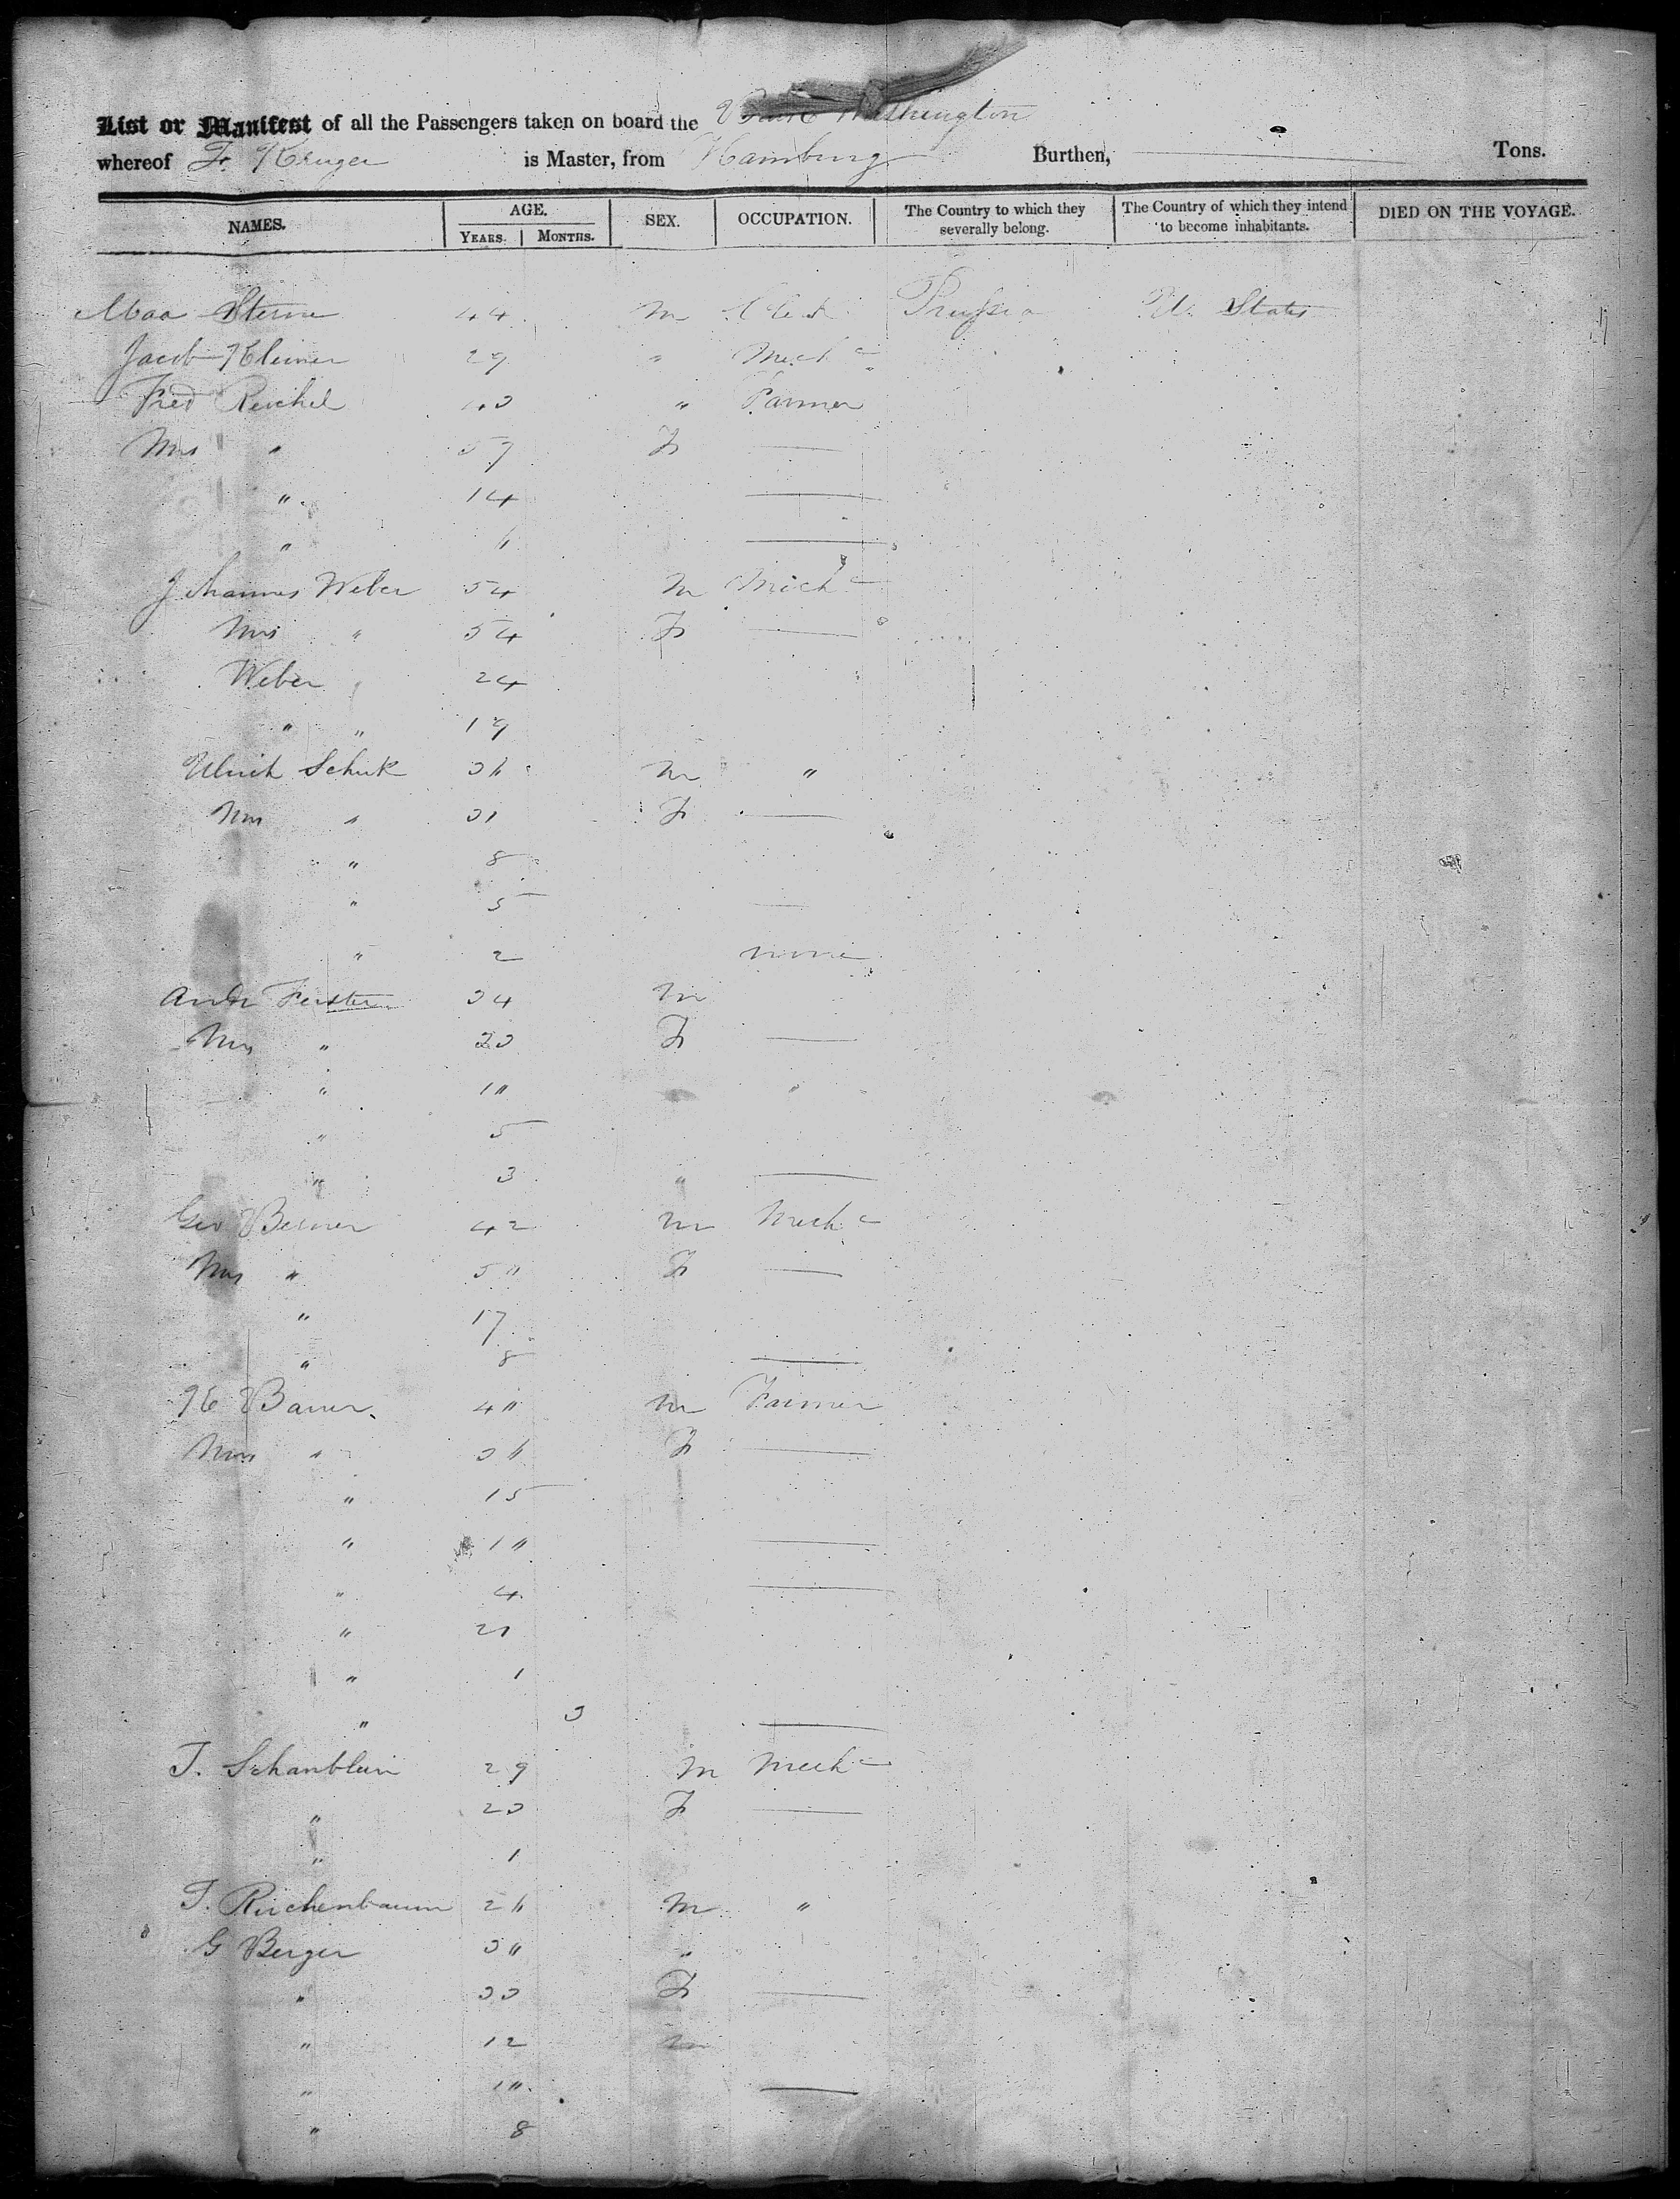 List or Manifest of all the Passengers taken on board the Washington
whereof Fr. Kruger is Master, from Hamburg Burthen, Tons.
NAMES. AGE. YEARS. MONTHS. SEX. OCCUPATION. The Country to which they severally belong. The Country of which they intend to become inhabitants. DIED ON THE VOYAGE.
Sterne 44 M Prussia U. States
Jacob Kleiner 29 " Mech c
Fred Reichel " Farmer
Mrs " 57 F —
" 14 —
" —
Johannes Weber 54 M Mech c
Mrs " 54 F —
Weber 24
" " 19
Ulrich Schuk M "
Mrs " 31 F —
" 8
" 5 —
" 2 none
Andr Ferster 34 M
Mrs " F —
" "
" 5
" 3 " —
Geo Berner 42 M Mech c
Mrs " F —
" 17
" 8 —
H Bauer M Farmer
Mrs " F —
" 15
" —
" 4 —
" 21
" 1
" 3 —
T. Schanblein 29 M Mech c
" 23 F —
" 1
T. Reichenbaum M "
G Berger "
" 33 F —
" 12 M
" —
" 8